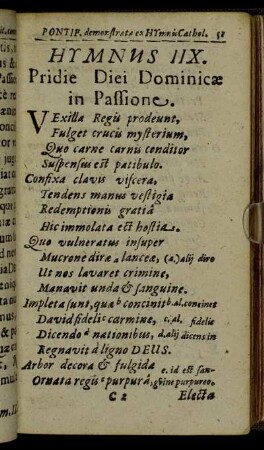 PONTIF. demonstrata ex HYmnis Cathol. 51
HYMNUS IIX.
Pridie Diei Dominicæ
in Passione.
VExilla Regis prodeunt,
Fulget crucis mysterium,
Quo carne carnis conditor
Suspensus est patibulo.
Confixa clavis viscera,
Tendens manus vestigia
Redemptionis gratiâ
Hic immolata est hostia.
Quo vulneratus insuper
Mucrone diræ a lanceæ, (a.) alij diro
Ut nos lavaret crimine,
Manavit unda & sanguine.
Impleta sunt, quæ b concinit b. al. concinet
David fideli c carmine, c. al. fidelis
Dicendo d nationibus, d. alij dicens in
Regnavit à ligno DEUS.
Arbor decora & fulgida
Ornata regis e purpurâ, e. id est san-
guine purpureo,
C 2 Electa